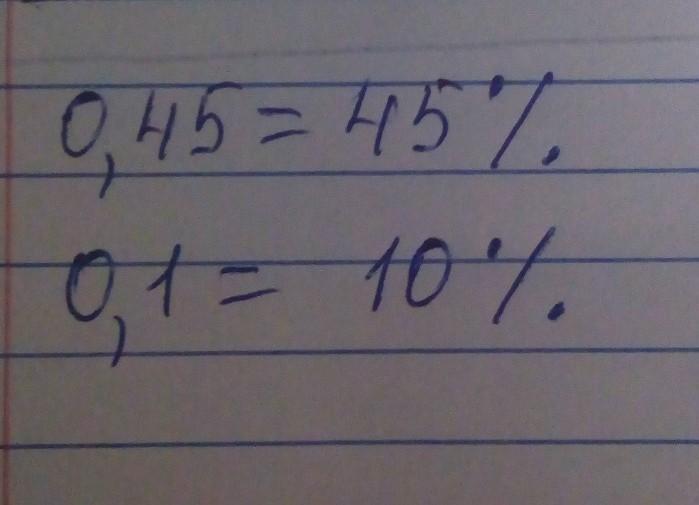 0,45 = 45%
0,1 = 10%